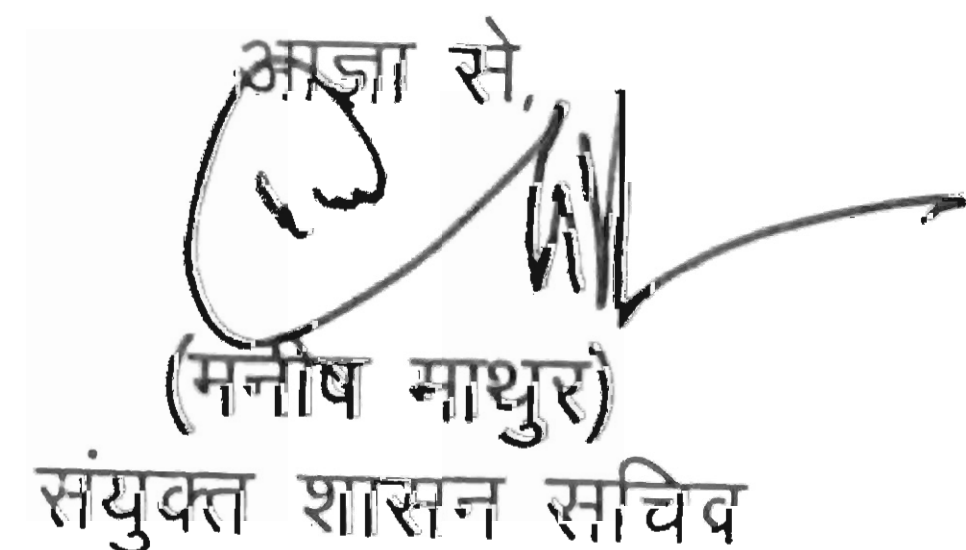 आज्ञा से,
(मनीष माथुर)
संयुक्त शासन सचिव